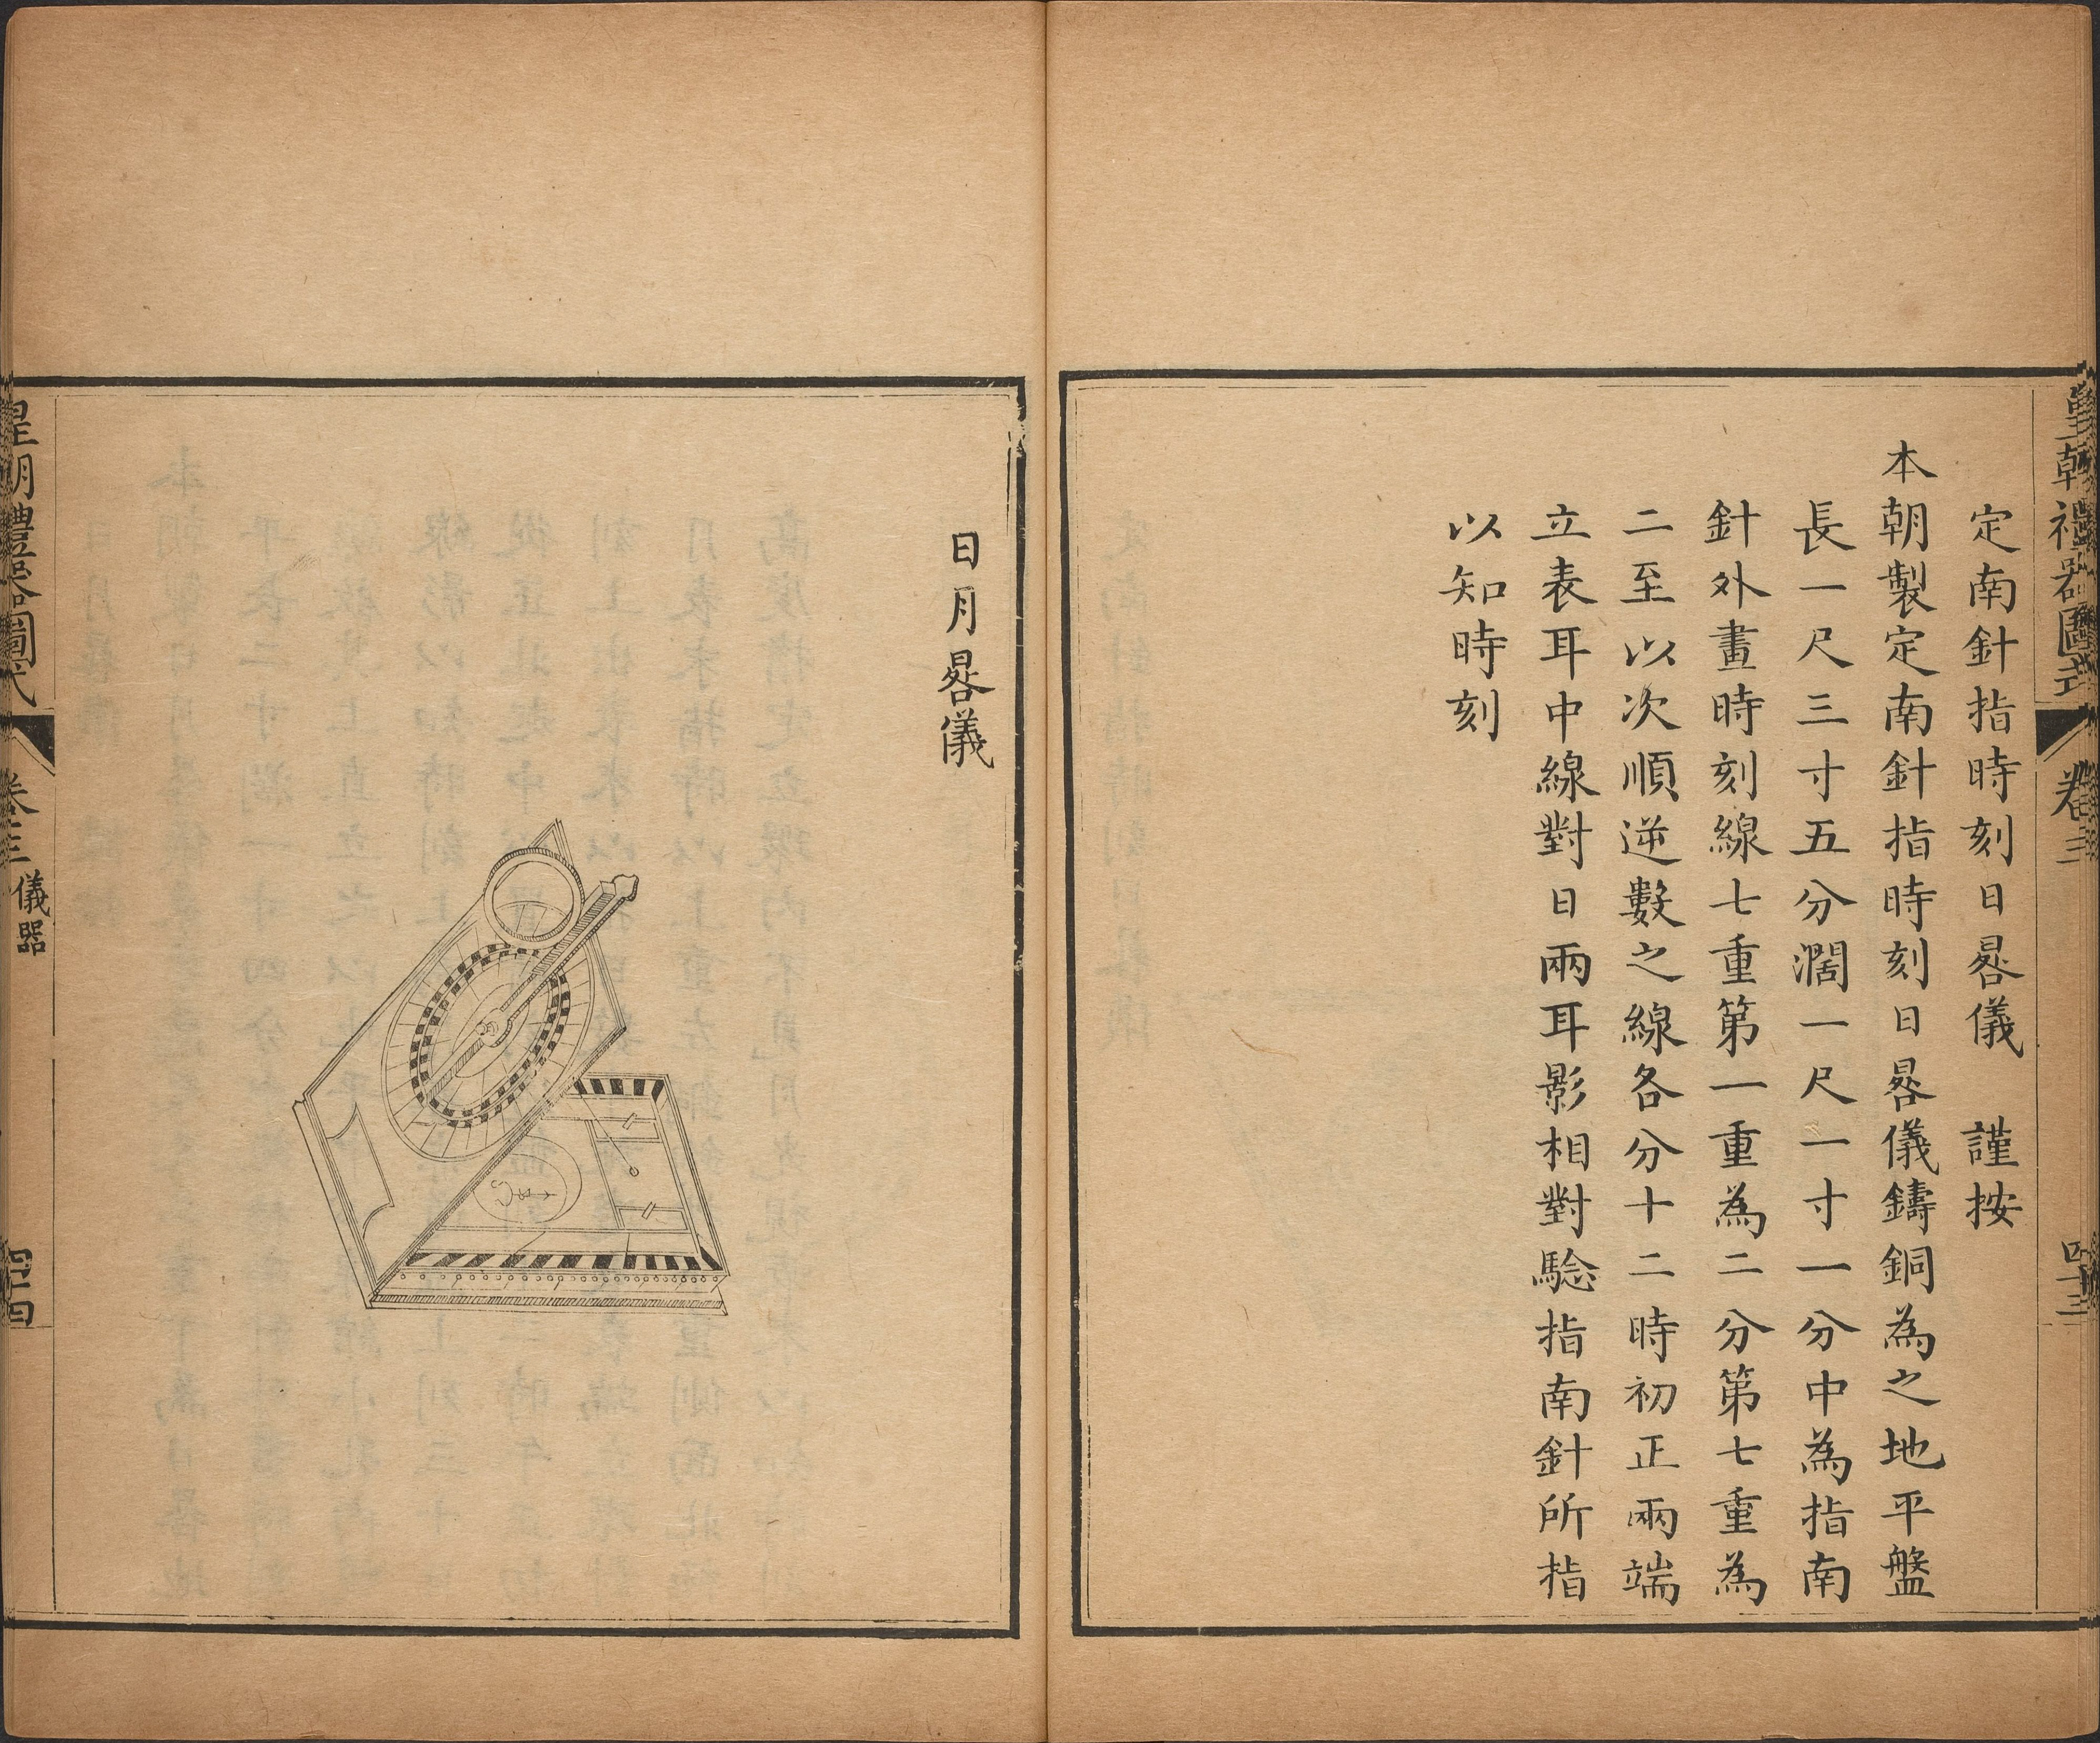 皇朝禮器圖式 卷三 四十三
定南針指時刻日晷儀 謹按
本朝製定南針指時刻日晷儀鑄銅為之地平盤
長一尺三寸五分濶一尺一寸一分中為指南
針外畫時刻線七重第一重為二分第七重為
二至以次順逆數之線各分十二時初正兩端
立表耳中線對日兩耳影相對騐指南針所指
以知時刻
日月晷儀
皇朝禮器圖式 卷三 儀器 四十四